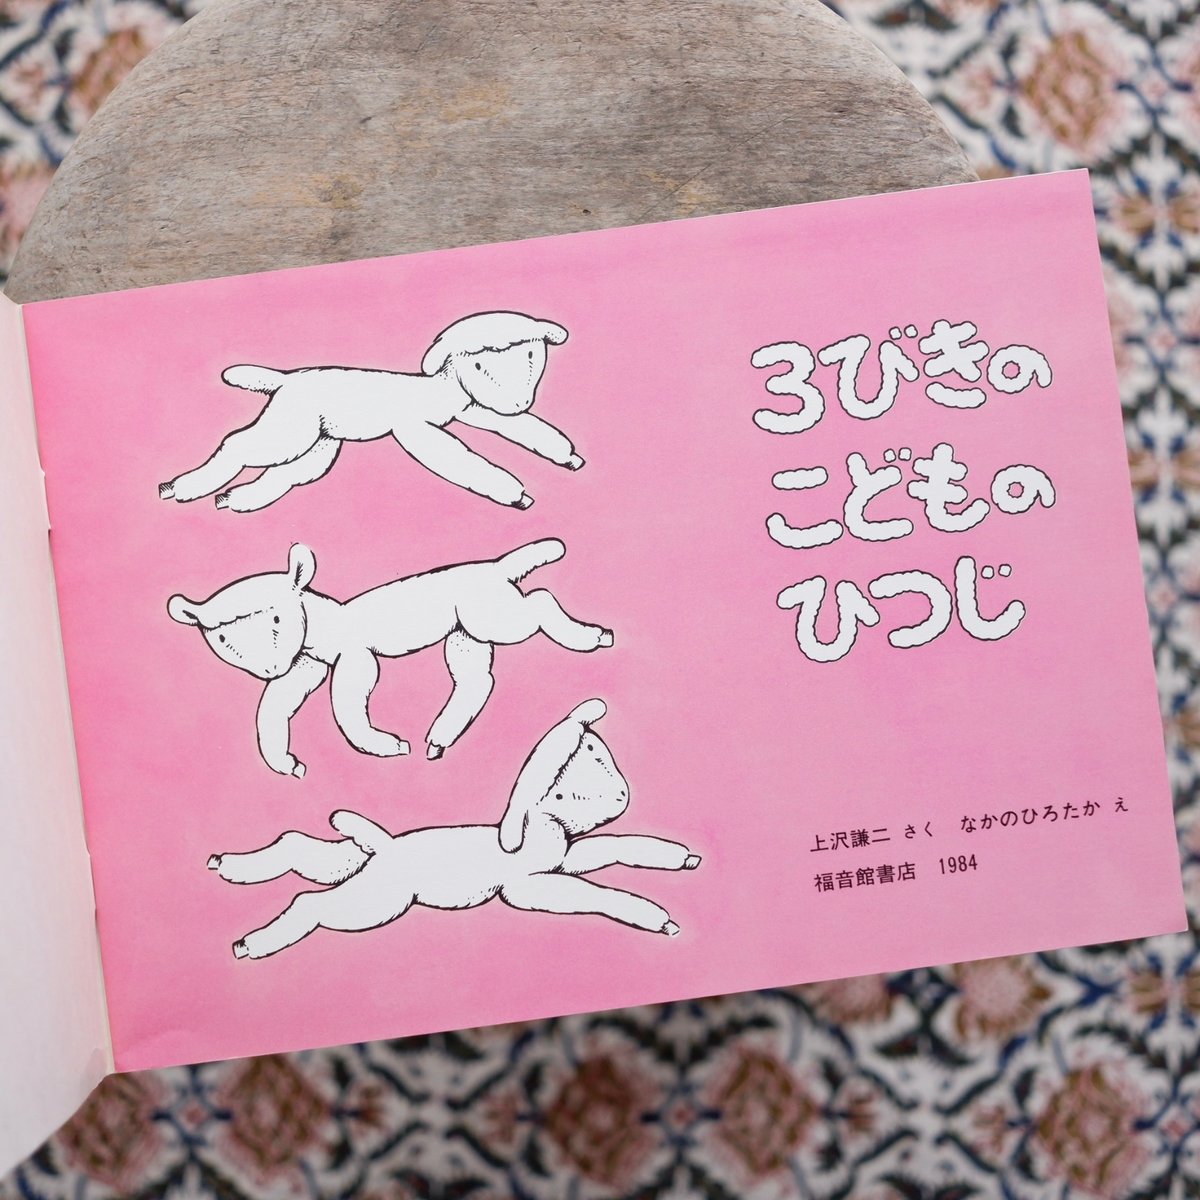 3びきの
こどもの
ひつじ
上沢謙二 さく なかのひろたか え
福音館書店 1984